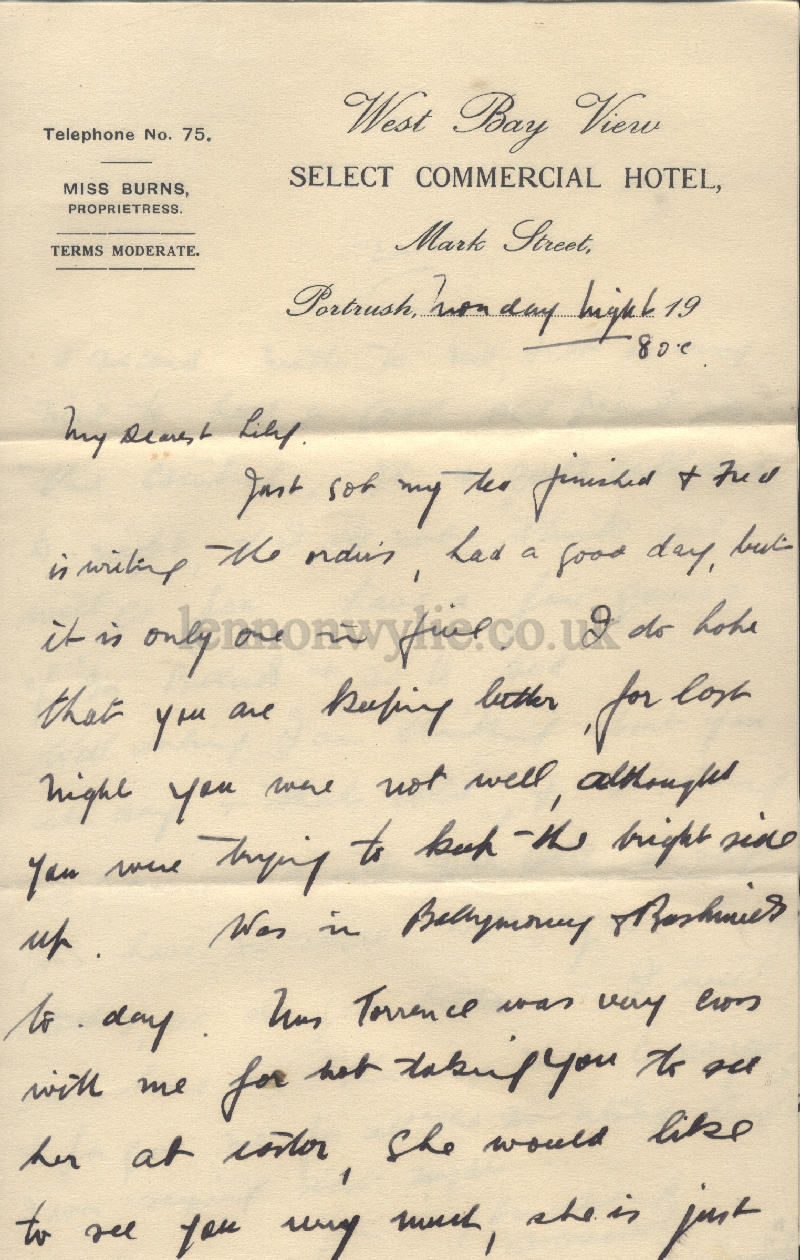 Telephone No. 75.
MISS BURNS,
PROPRIETRESS.
TERMS MODERATE.
West Bay View
SELECT COMMERCIAL HOTEL,
Mark Street,
Portrush, Monday Night 19
My Dearest Lily.
Just got my tea finished & Fred
is writing the orders, had a good day, but
it is only one in five. I do hope
that you are keeping better, for last
night you were not well, althought
you were trying to keep the bright side
up. Was in Ballymoney & Bushmills
to.day. Mrs Torrence was very cross
with me for not taking you to see
her at easter, she would like
to see you very much, she is just
lennonwylie.co.uk